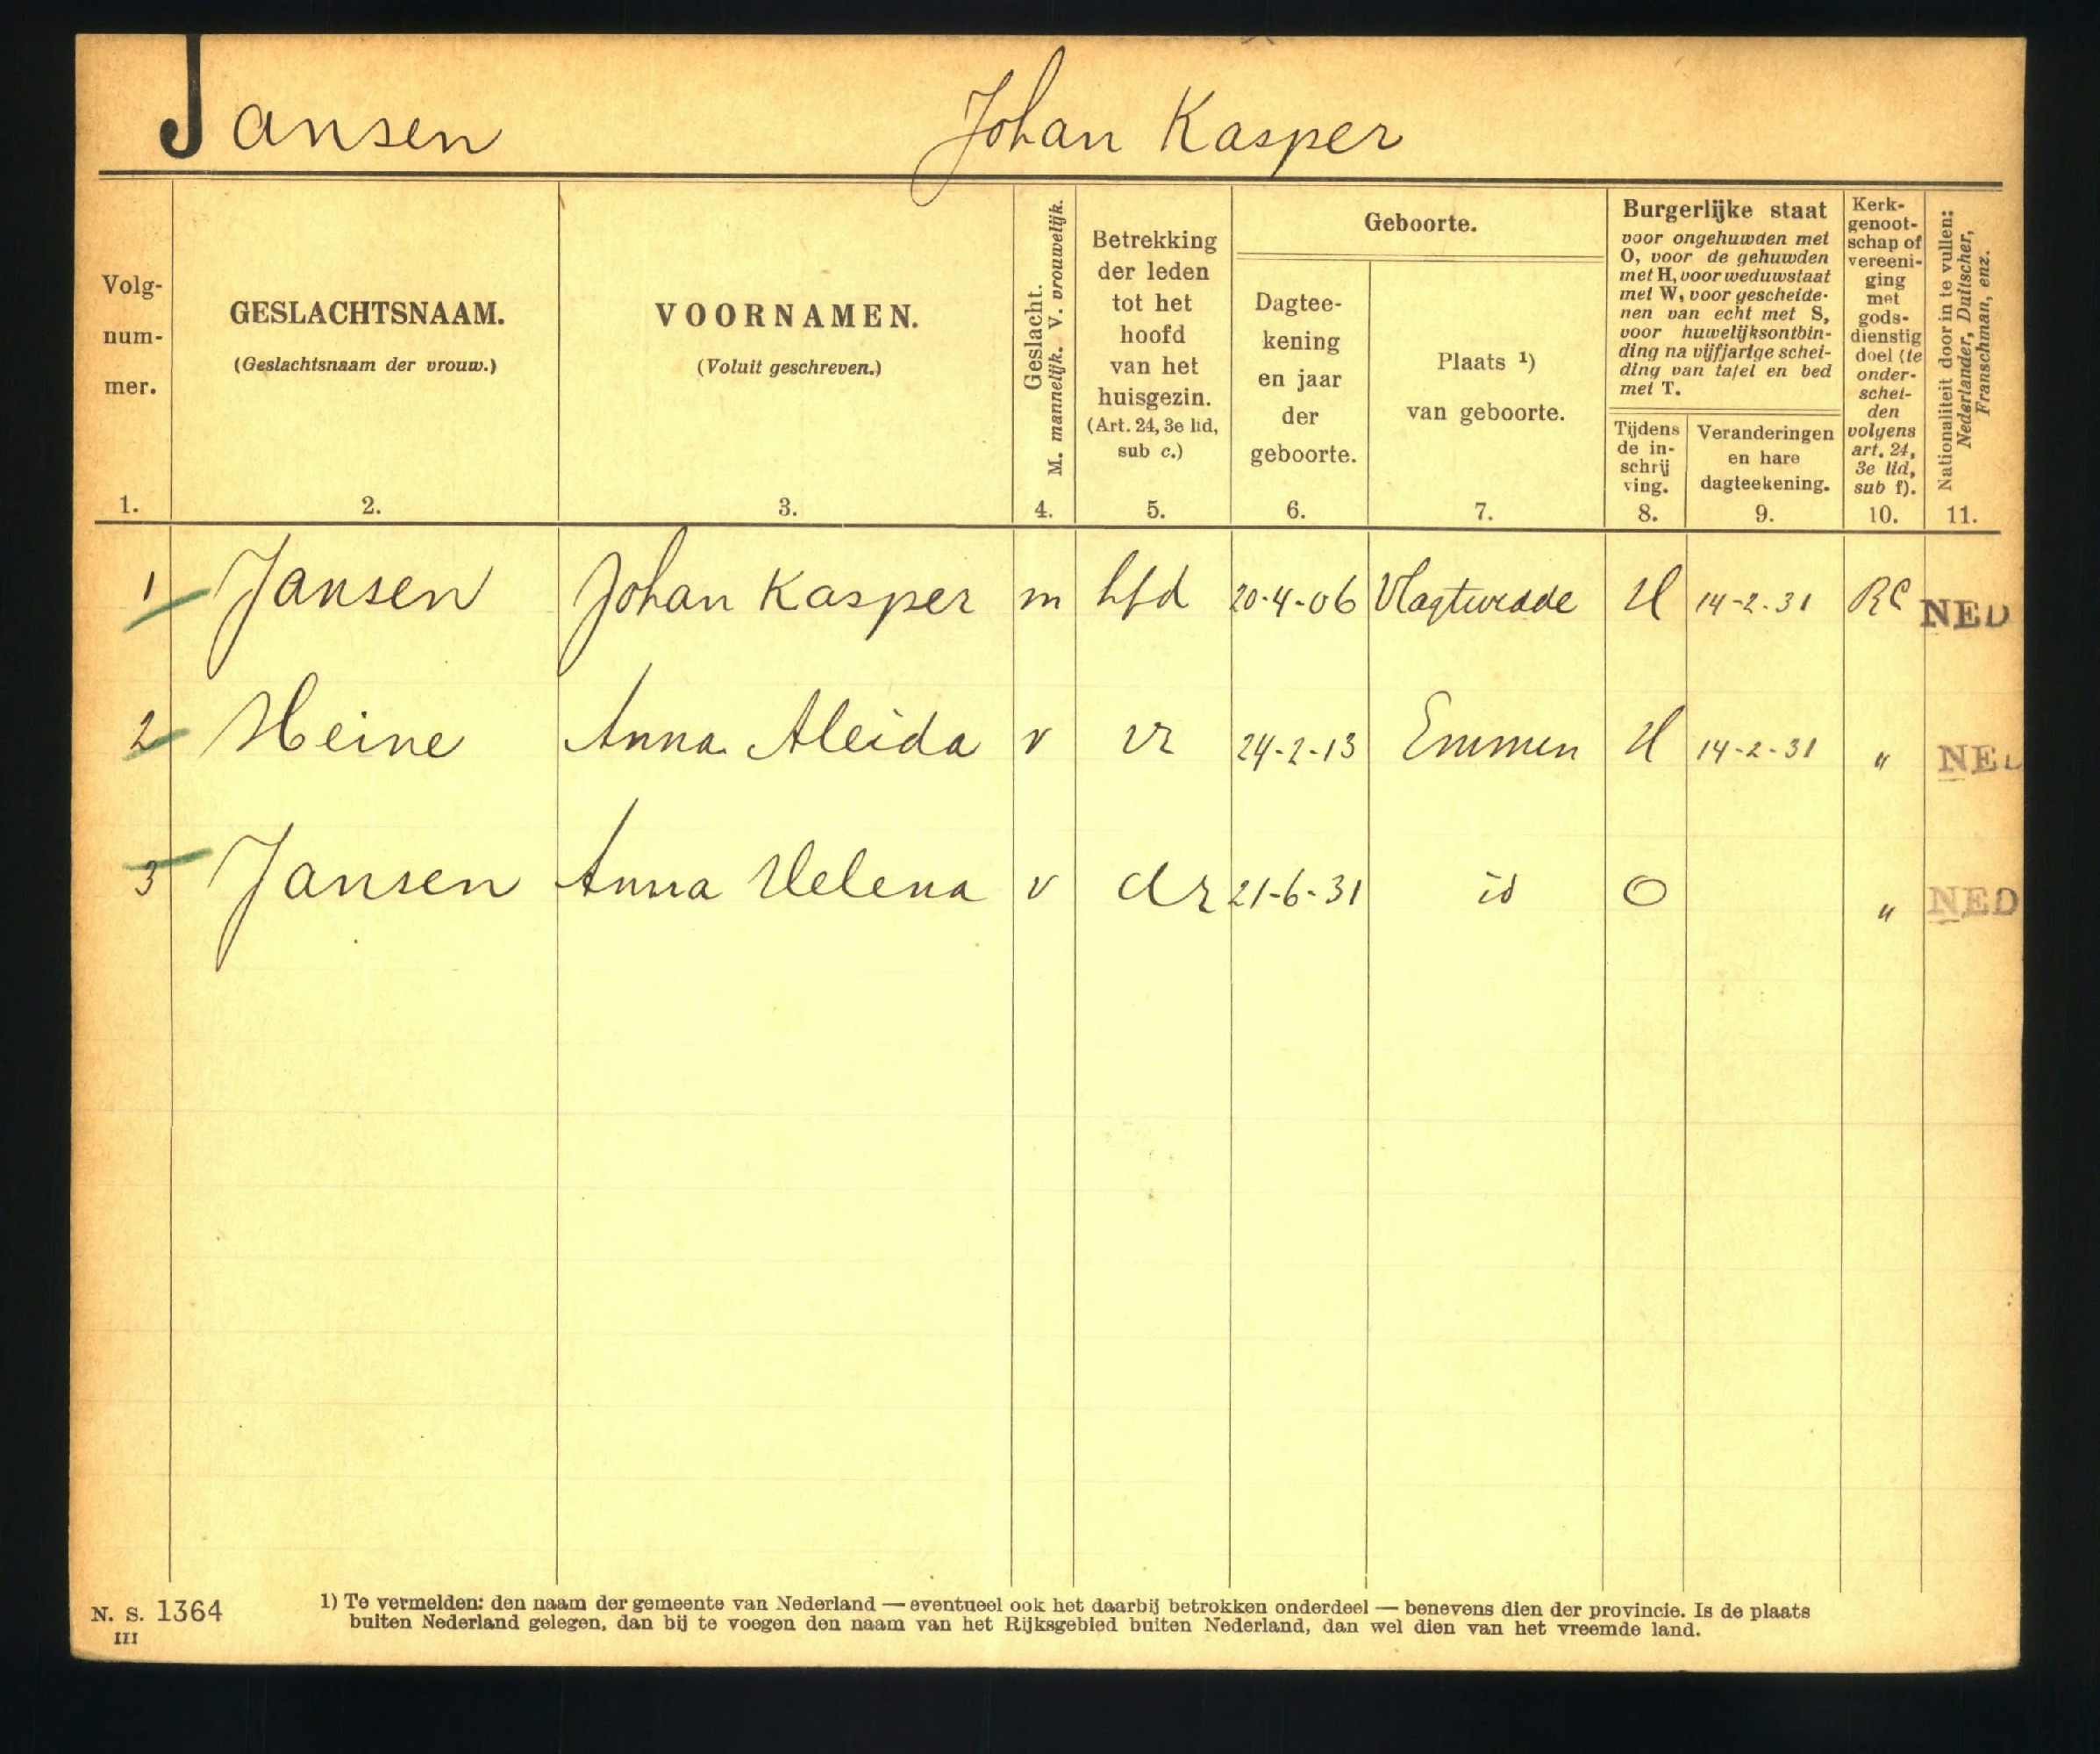 Jansen Johan Kasper
Volg-
num-
mer.
1.
GESLACHTSNAAM.
(Geslachtsnaam der vrouw.)
2.
VOORNAMEN.
(Voluit geschreven.)
3.
Geslacht.
M. mannelijk. V. vrouwelijk.
4.
Betrekking
der leden
tot het
hoofd
van het
huisgezin.
(Art. 24, 3e lid,
sub c.)
5.
Geboorte.
Dagtee-
kening
en jaar
der
geboorte.
6.
Plaats ¹)
van geboorte.
7.
Burgerlijke staat
voor ongehuwden met
O, voor de gehuwden
met H, voor weduwstaat
met W, voor gescheide-
nen van echt met S,
voor huwelijksontbin-
ding na vijfjarige schei-
ding van tafel en bed
met T.
Tijdens
de in-
schrij
ving.
8.
Veranderingen
en hare
dagteekening.
9.
Kerk-
genoot-
schap of
vereeni-
ging
met
gods-
dienstig
doel (te
onder-
schei-
den
volgens
art. 24,
3e lid,
sub f).
10.
Nationaliteit door in te vullen:
Nederlander, Duitscher,
Franschman, enz.
11.
1 Jansen Johan Kasper m hfd 20-4-06 Vlagtwedde H 14-2-31 RC NED
2 Heine Anna Aleida v vr 24-2-13 Emmen H 14-2-31 " NED
3 Jansen Anna Helena v dr 21-6-31 id O " NED
N. S. 1364
III
1) Te vermelden: den naam der gemeente van Nederland — eventueel ook het daarbij betrokken onderdeel — benevens dien der provincie. Is de plaats
buiten Nederland gelegen, dan bij te voegen den naam van het Rijksgebied buiten Nederland, dan wel dien van het vreemde land.